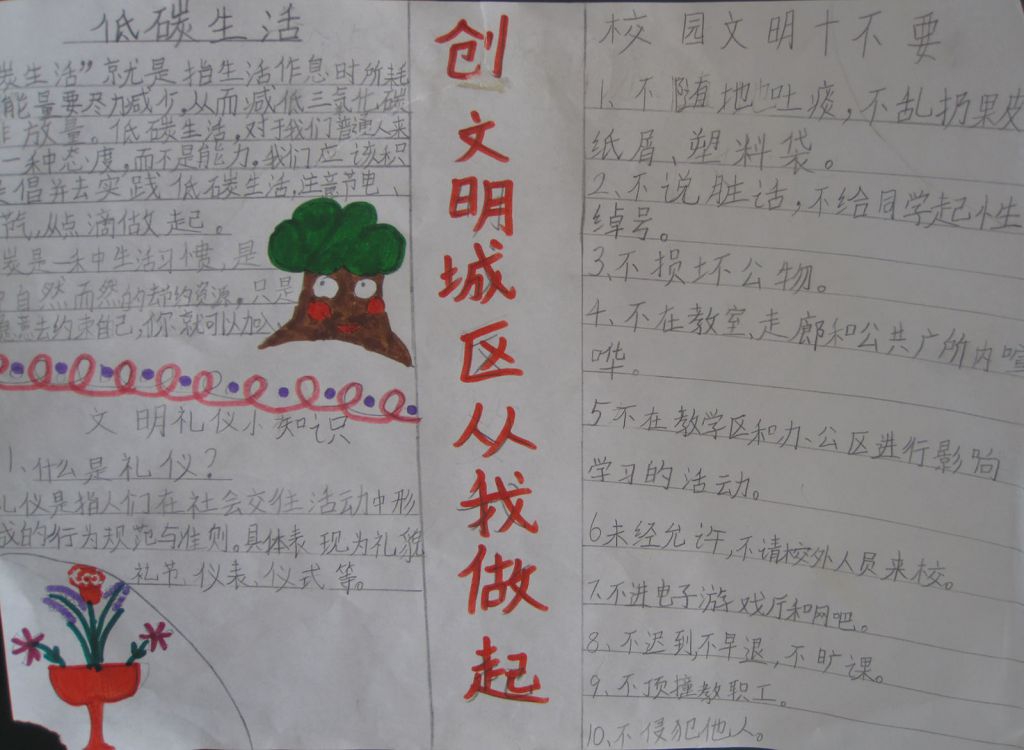 低碳生活
炭生活”就是指生活作息时所耗
能量要尽力减少，从而减低三氧化碳
放量。低碳生活，对于我们普通人来
一种态度，而不是能力。我们应该积
倡并去实践低碳生活，注意节电、
节气，从点滴做起。
炭是一种生活习惯，是
自然而然的去节约资源，只是
愿意去约束自己，你就可以加入
文明礼仪小知识
1、什么是礼仪？
礼仪是指人们在社会交往活动中形
成的行为规范与准则。具体表现为礼貌
礼节、仪表、仪式等。
创
文
明
城
区
从
我
做
起
校园文明十不要
1、不随地吐痰，不乱扔果皮
纸屑、塑料袋。
2、不说脏话，不给同学起小生
绰号。
3、不损坏公物。
4、不在教室、走廊和公共广所内喧
哗。
5不在教学区和办公区进行影响
学习的活动。
6未经允许，不请校外人员来校。
7.不进电子游戏厅和网吧。
8、不迟到，不早退，不旷课。
9、不顶撞教职工。
10、不侵犯他人。